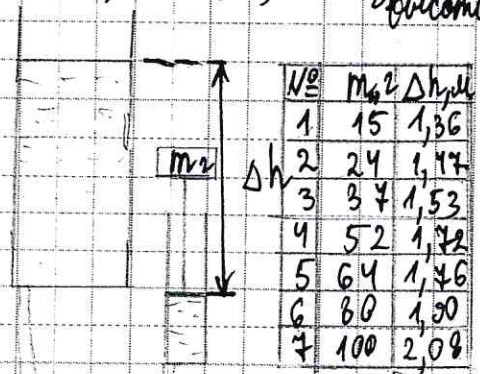 № m, г Δh, м
1 15 1,36
mг Δh 2 24 1,47
3 37 1,53
4 52 1,72
5 64 1,76
6 80 1,90
7 100 2,08